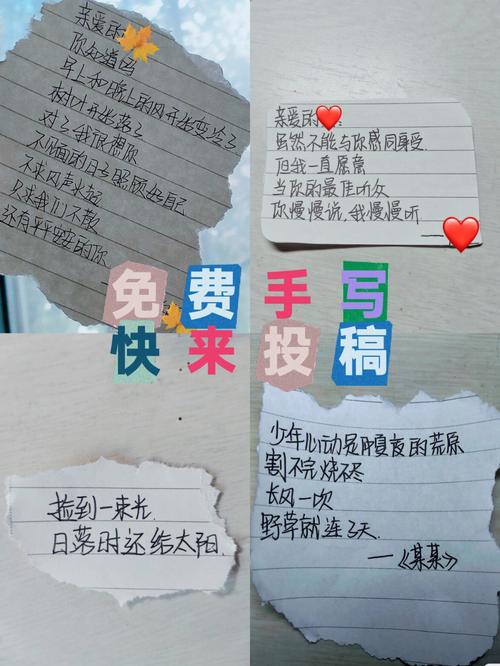 亲爱的
你知道吗
早上和晚上的风开始变冷了
树叶开始落了
对了我很想你
不见面的日子照顾好自己
不求风声水起
只求我们不散
还有平平安安的你
亲爱的
虽然不能与你感同身受.
但我一直愿意
当你的最佳听众
你慢慢说,我慢慢听
免费手写
快来投稿
捡到一束光
日落时还给太阳.
少年心动是仲夏夜的荒原
割不完烧不尽
长风一吹
野草就连了天.
——《某某》